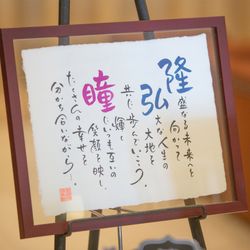 隆弘
盛なる未来へと
向かって
大な人生の
大地を
共に歩んでいこう。
瞳
輝く
いつも互いの
笑顔を映し、
たくさんの幸せを
分かち合いながら…。